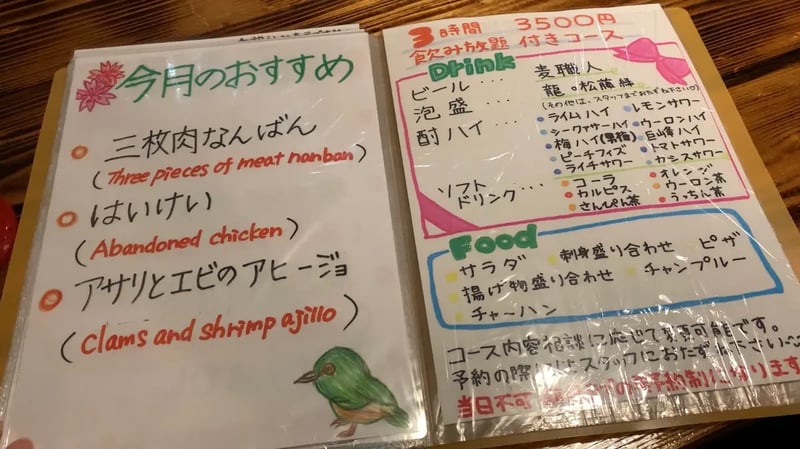 今月のおすすめ
三枚肉なんばん
(Three pieces of meat nanban)
はいけい
(Abandoned chicken)
アサリとエビのアヒージョ
(clams and shrimp ajillo)
3時間 3500円
飲み放題 付きコース
Drink
ビール・・・ 麦職人
泡盛・・・ 龍。松藤 緑
(その他は、スタッフまでおたずね下さい。)
酎ハイ・・・ ライムハイ レモンサワー
シークヮサーハイ ウーロンハイ
梅ハイ(男梅) 巨峰ハイ
ピーチフィズ トマトサワー
ライチサワー カシスサワー
ソフトドリンク・・・ コーラ オレンジ
カルピス ウーロン茶
さんぴん茶 うっちん茶
Food
サラダ 刺身盛り合わせ ピザ
揚げ物盛り合わせ チャンプルー
チャーハン
コース内容相談に応じて変更可能です。
予約の際 スタッフにおたずね下さい
当日不可